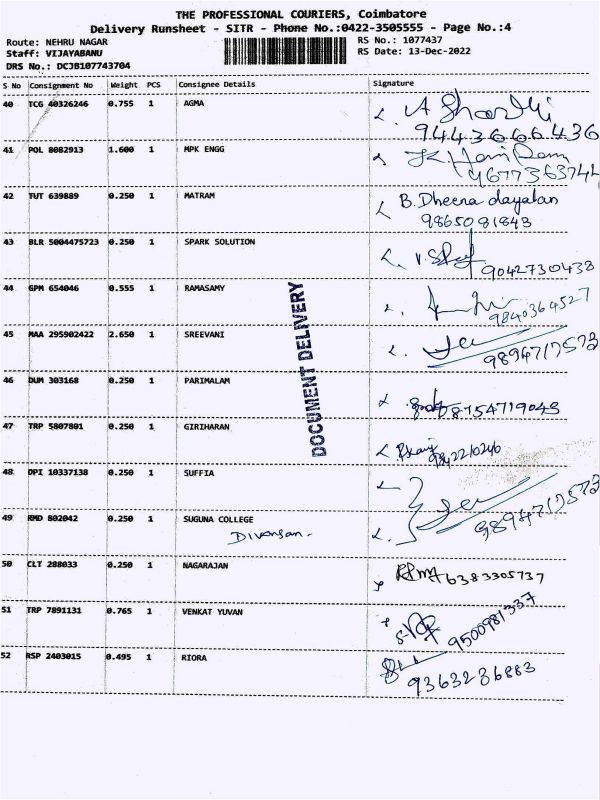 THE PROFESSIONAL COURIERS, Coimbatore
Delivery Runsheet - SITR - Phone No.:0422-3505555 - Page No.:4
Route: NEHRU NAGAR RS No.: 1077437
Staff: VIJAYABANU RS Date: 13-Dec-2022
DRS No.: DCJB107743704
S No Consignment No Weight PCS Consignee Details Signature
40 TCG 40326246 0.755 1 AGMA
9443666436
41 POL 8082913 1.600 1 MPK ENGG
9677363744
42 TUT 639889 0.250 1 MATRAM B. Dheena dayalan
9865081843
43 BLR 5004475723 0.250 1 SPARK SOLUTION
9042730438
44 GPM 654046 0.555 1 RAMASAMY
9840364527
45 MAA 295902422 2.650 1 SREEVANI
9894717573
46 DUM 303168 0.250 1 PARIMALAM
8154719043
47 TRP 5807801 0.250 1 GIRIHARAN
48 DPI 10337138 0.250 1 SUFFIA
9894717573
49 RMD 802042 0.250 1 SUGUNA COLLEGE
50 CLT 288033 0.250 1 NAGARAJAN
6383305737
51 TRP 7891131 0.765 1 VENKAT YUVAN
9500981337
52 RSP 2403015 0.495 1 RIORA
9363236883
DOCUMENT DELIVERY